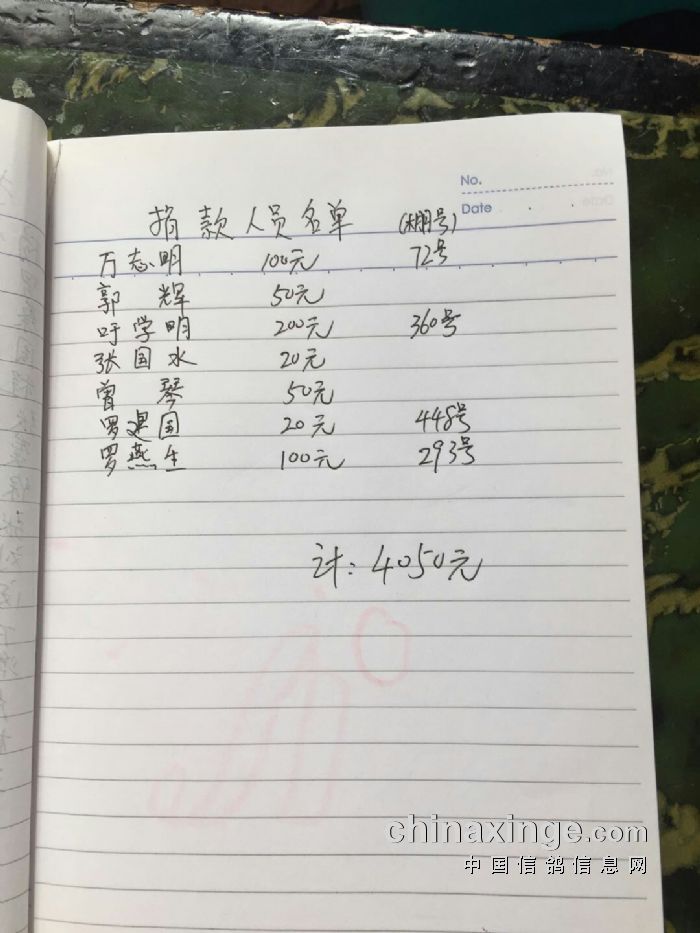 No.
Date
捐款人员名单 (棚号)
万志明 100元 72号
郭辉 50元
吁学明 200元 360号
张国水 20元
曾琴 50元
罗建国 20元 448号
罗燕生 100元 293号
计:4050元
chinaxinge.com
中国信鸽信息网